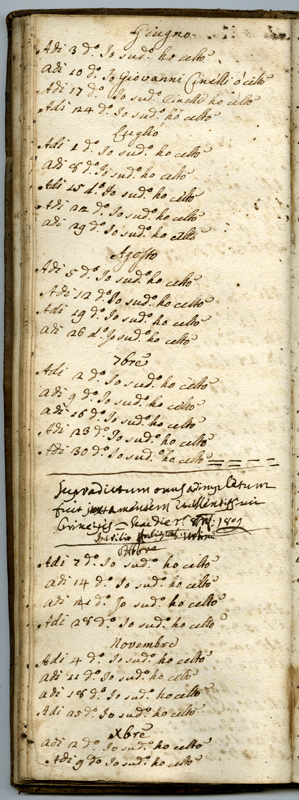 Giugno
Adi 3 d.º Io sud.º ho celtº
adi 10 d.º Io Giovanni Cinelli ò celtº
Adi 17 d.º Io sud.º Cinelli ho celtº
Adi 24 d.º Io sud.º ho celtº
Luglio
Adi 1 d.º Io sud.º ho celtº
Adi 8 d.º Io sud.º ho celtº
Adi 15 d.º Io sud.º ho celtº
Adi 22 d.º Io sud.º ho celtº
adi 29 d.º Io sud.º ho celtº
Agosto
Adi 5 d.º Io sud.º ho celtº
Adi 12 d.º Io sud.º ho celtº
Adi 19 d.º Io sud.º ho celtº
adi 26 d.º Io sud.º ho celtº
7bre
Adi 2 d.º Io sud.º ho celtº
adi 9 d.º Io sud.º ho celtº
adi 16 d.º Io sud.º ho celtº
Adi 23 d.º Io sud.º ho celtº
Adi 30 d.º Io sud.º ho celtº
Supradictum onus adimpletum
fuit juxta mensem
die 1801
8bre
Adi 7 d.º Io sud.º ho celtº
adi 14 d.º Io sud.º ho celtº
adi 21 d.º Io sud.º ho celtº
Adi 28 d.º Io sud.º ho celtº
Novembre
Adi 4 d.º Io sud.º ho celtº
adi 11 d.º Io sud.º ho celtº
adi 18 d.º Io sud.º ho celtº
Adi 25 d.º Io sud.º ho celtº
Xbre
adi 2 d.º Io sud.º ho celtº
Adi 9 d.º Io sud.º ho celtº